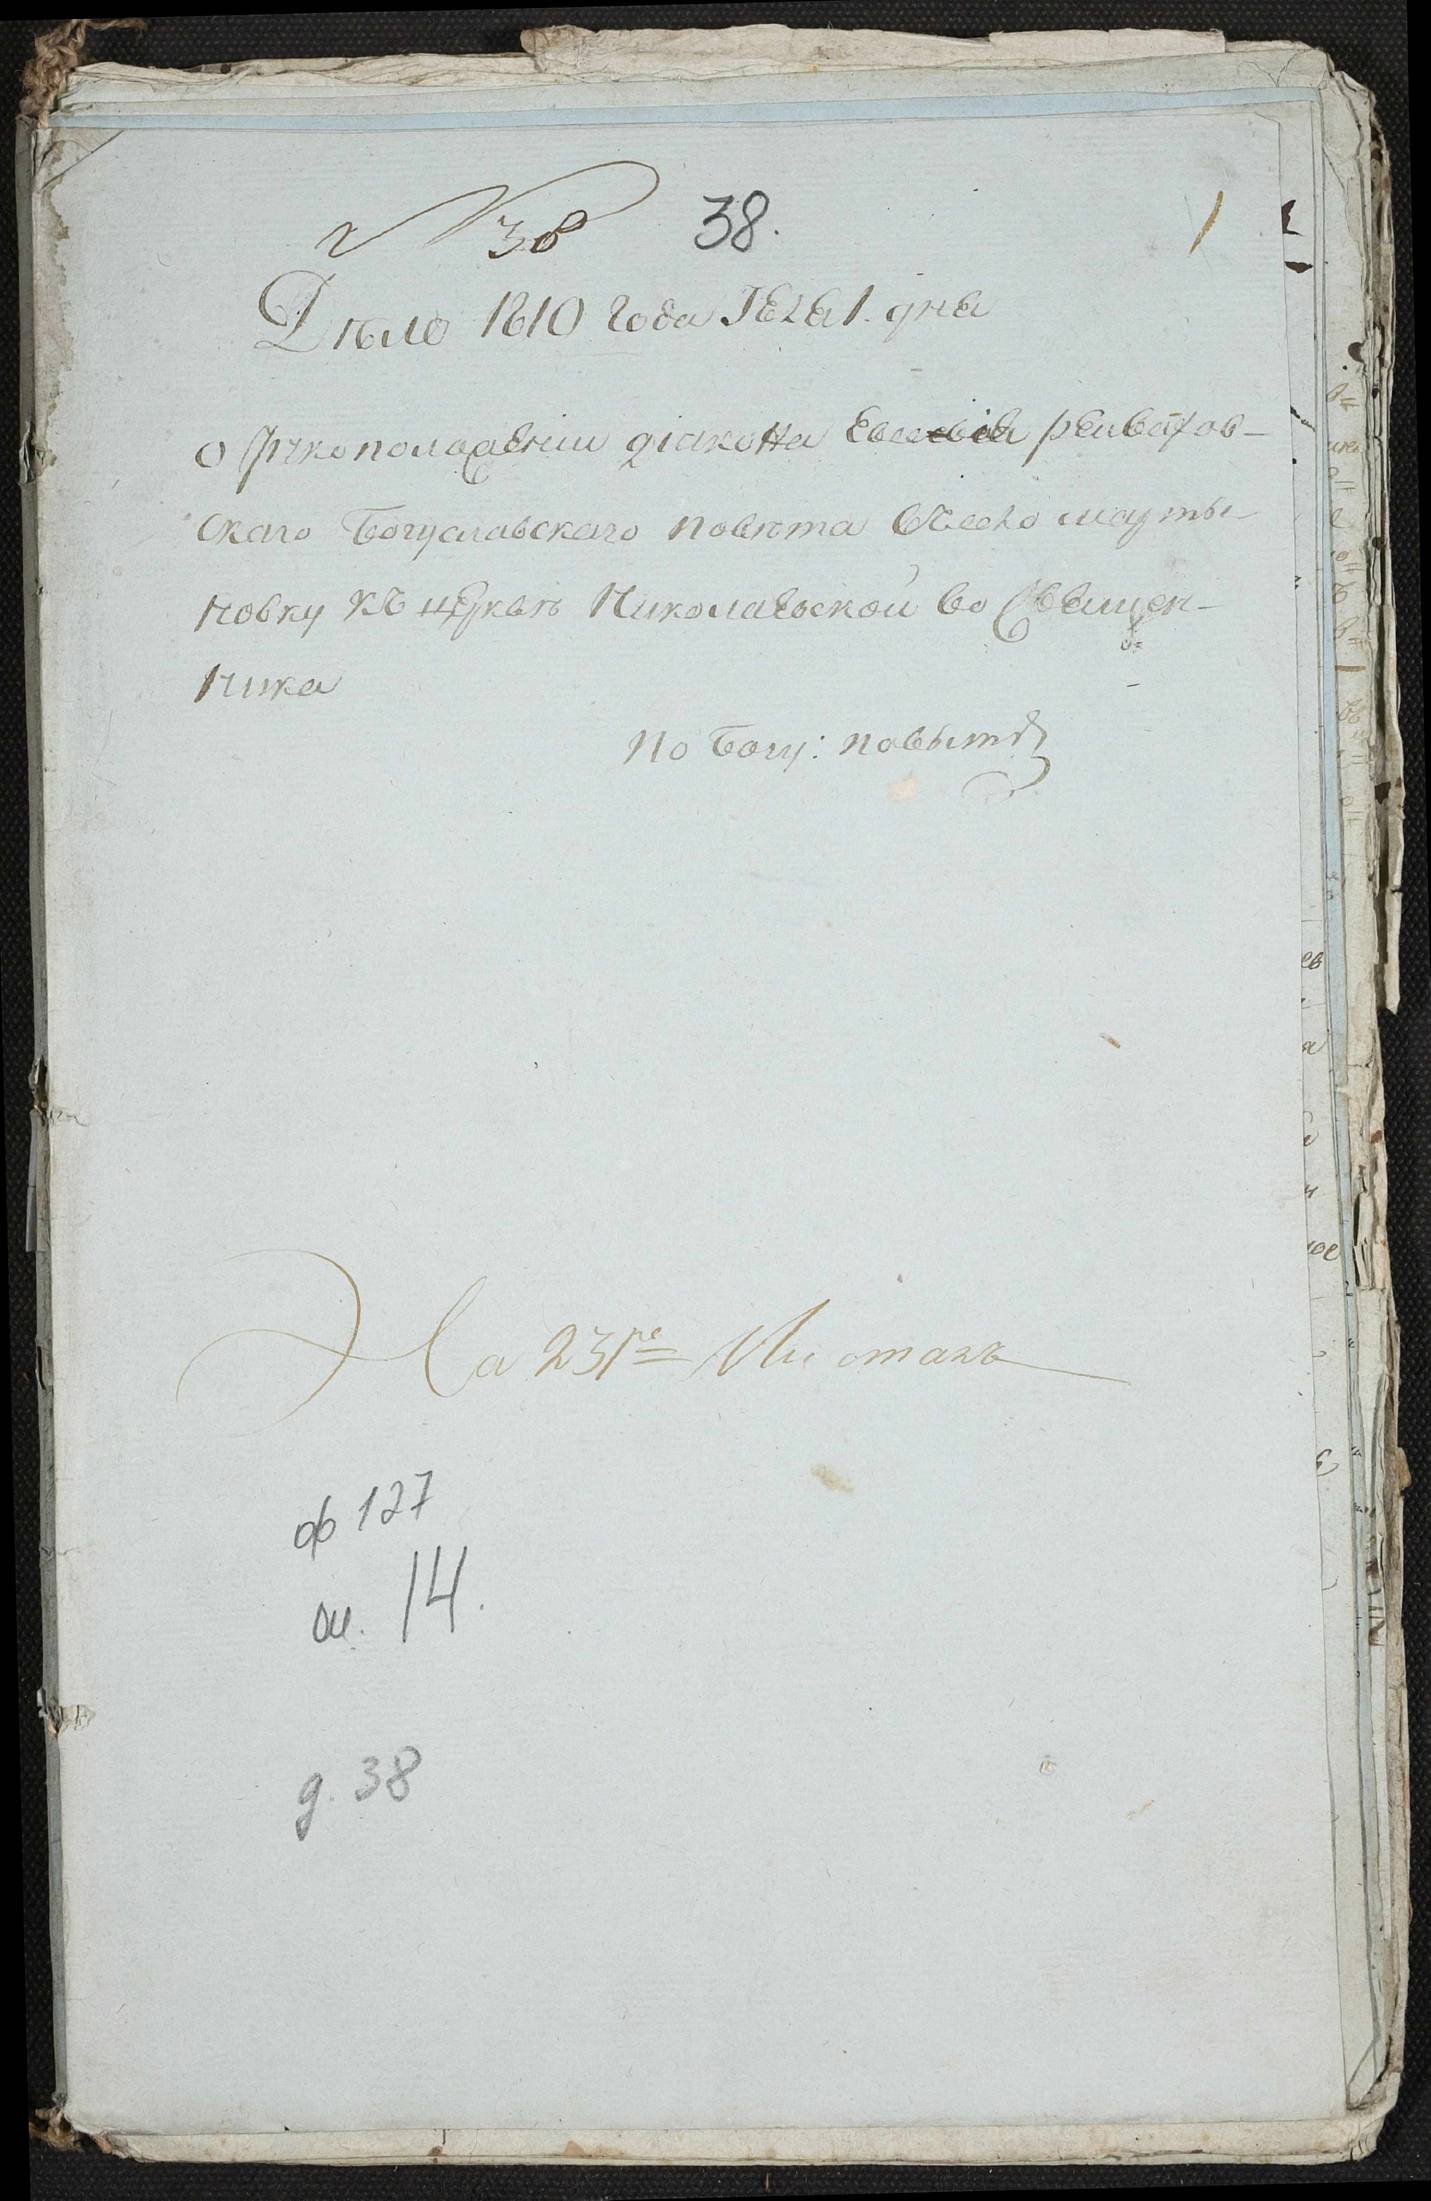 № 38 38. 1
Дѣло 1810 года Іюля 1. дня
о рукоположеніи діакона Евсевія
скаго Богуславскаго повѣта въ село марты-
новку къ церквѣ Николаевской во Священ-
ника
по Богу: повытю
На 23 листахъ
ф 127
оп. 14.
д. 38